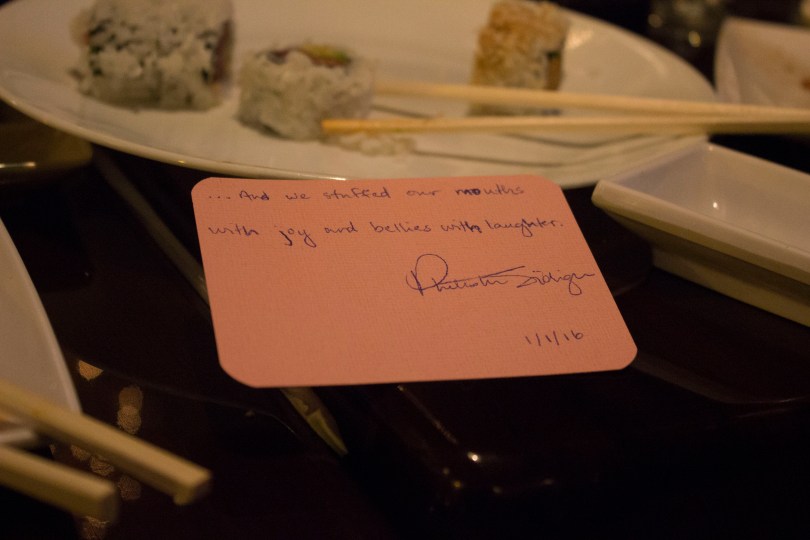 ... And we stuffed our mouths
with joy and bellies with laughter.
1/1/16